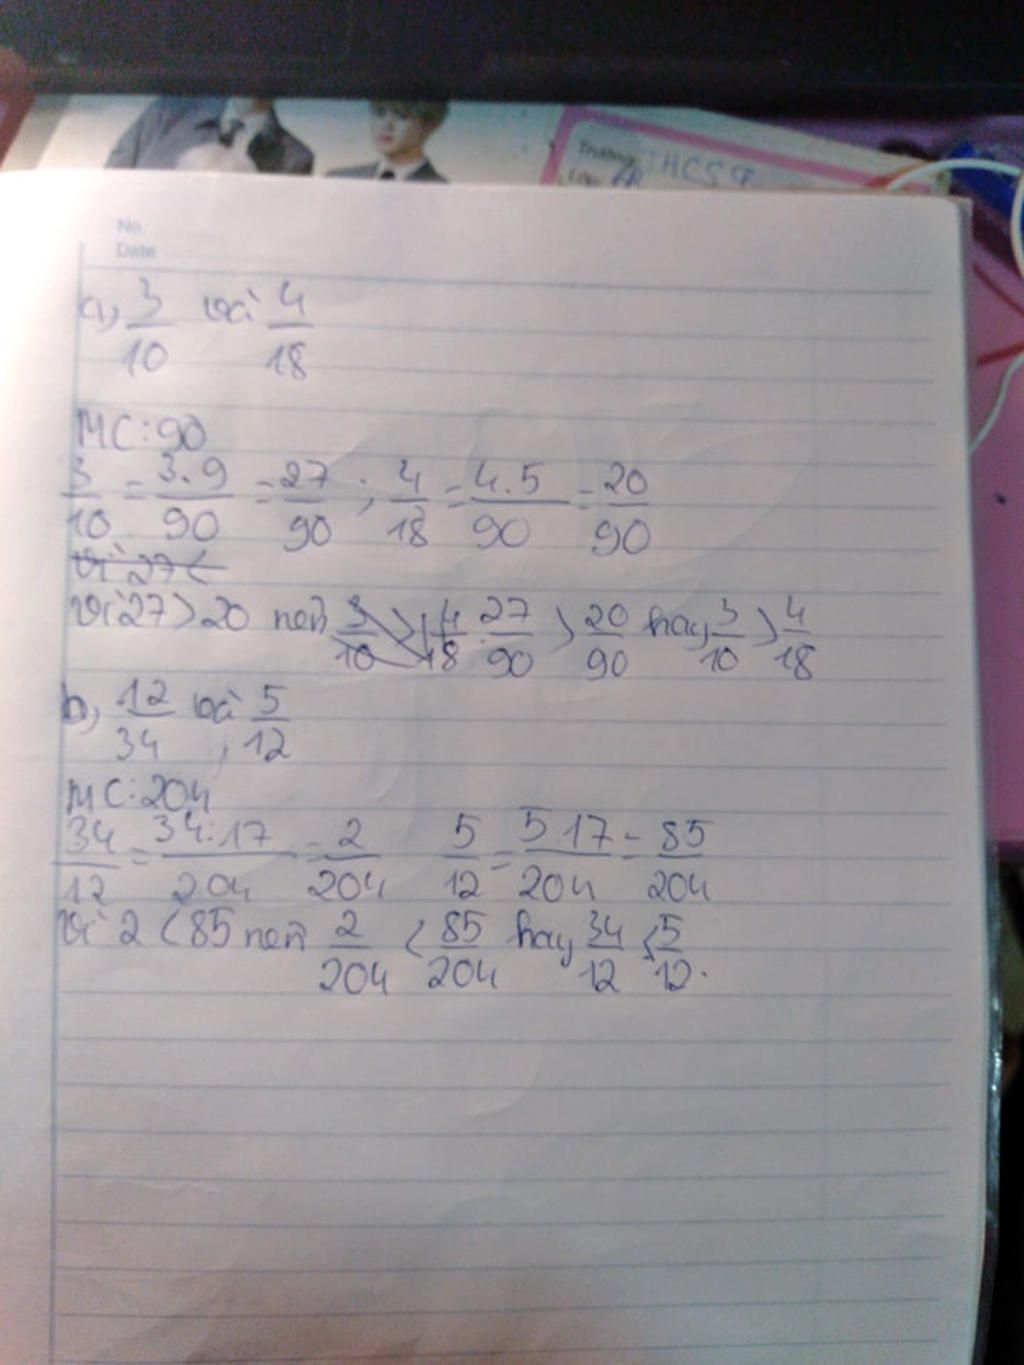 Trường THCS
No.
Date
a, 3/10 và 4/18
MC: 90
3/10 = 3.9/90 = 27/90 ; 4/18 = 4.5/90 = 20/90
Vì 27 <
Vì 27 > 20 nên 3/10 > 4/18 27/90 > 20/90 hay 3/10 > 4/18
b, 12/34 và 5/12
MC: 204
34/12 = 34:17/204 = 2/204 5/12 = 5 17/204 = 85/204
Vì 2 < 85 nên 2/204 < 85/204 hay 34/12 < 5/12.